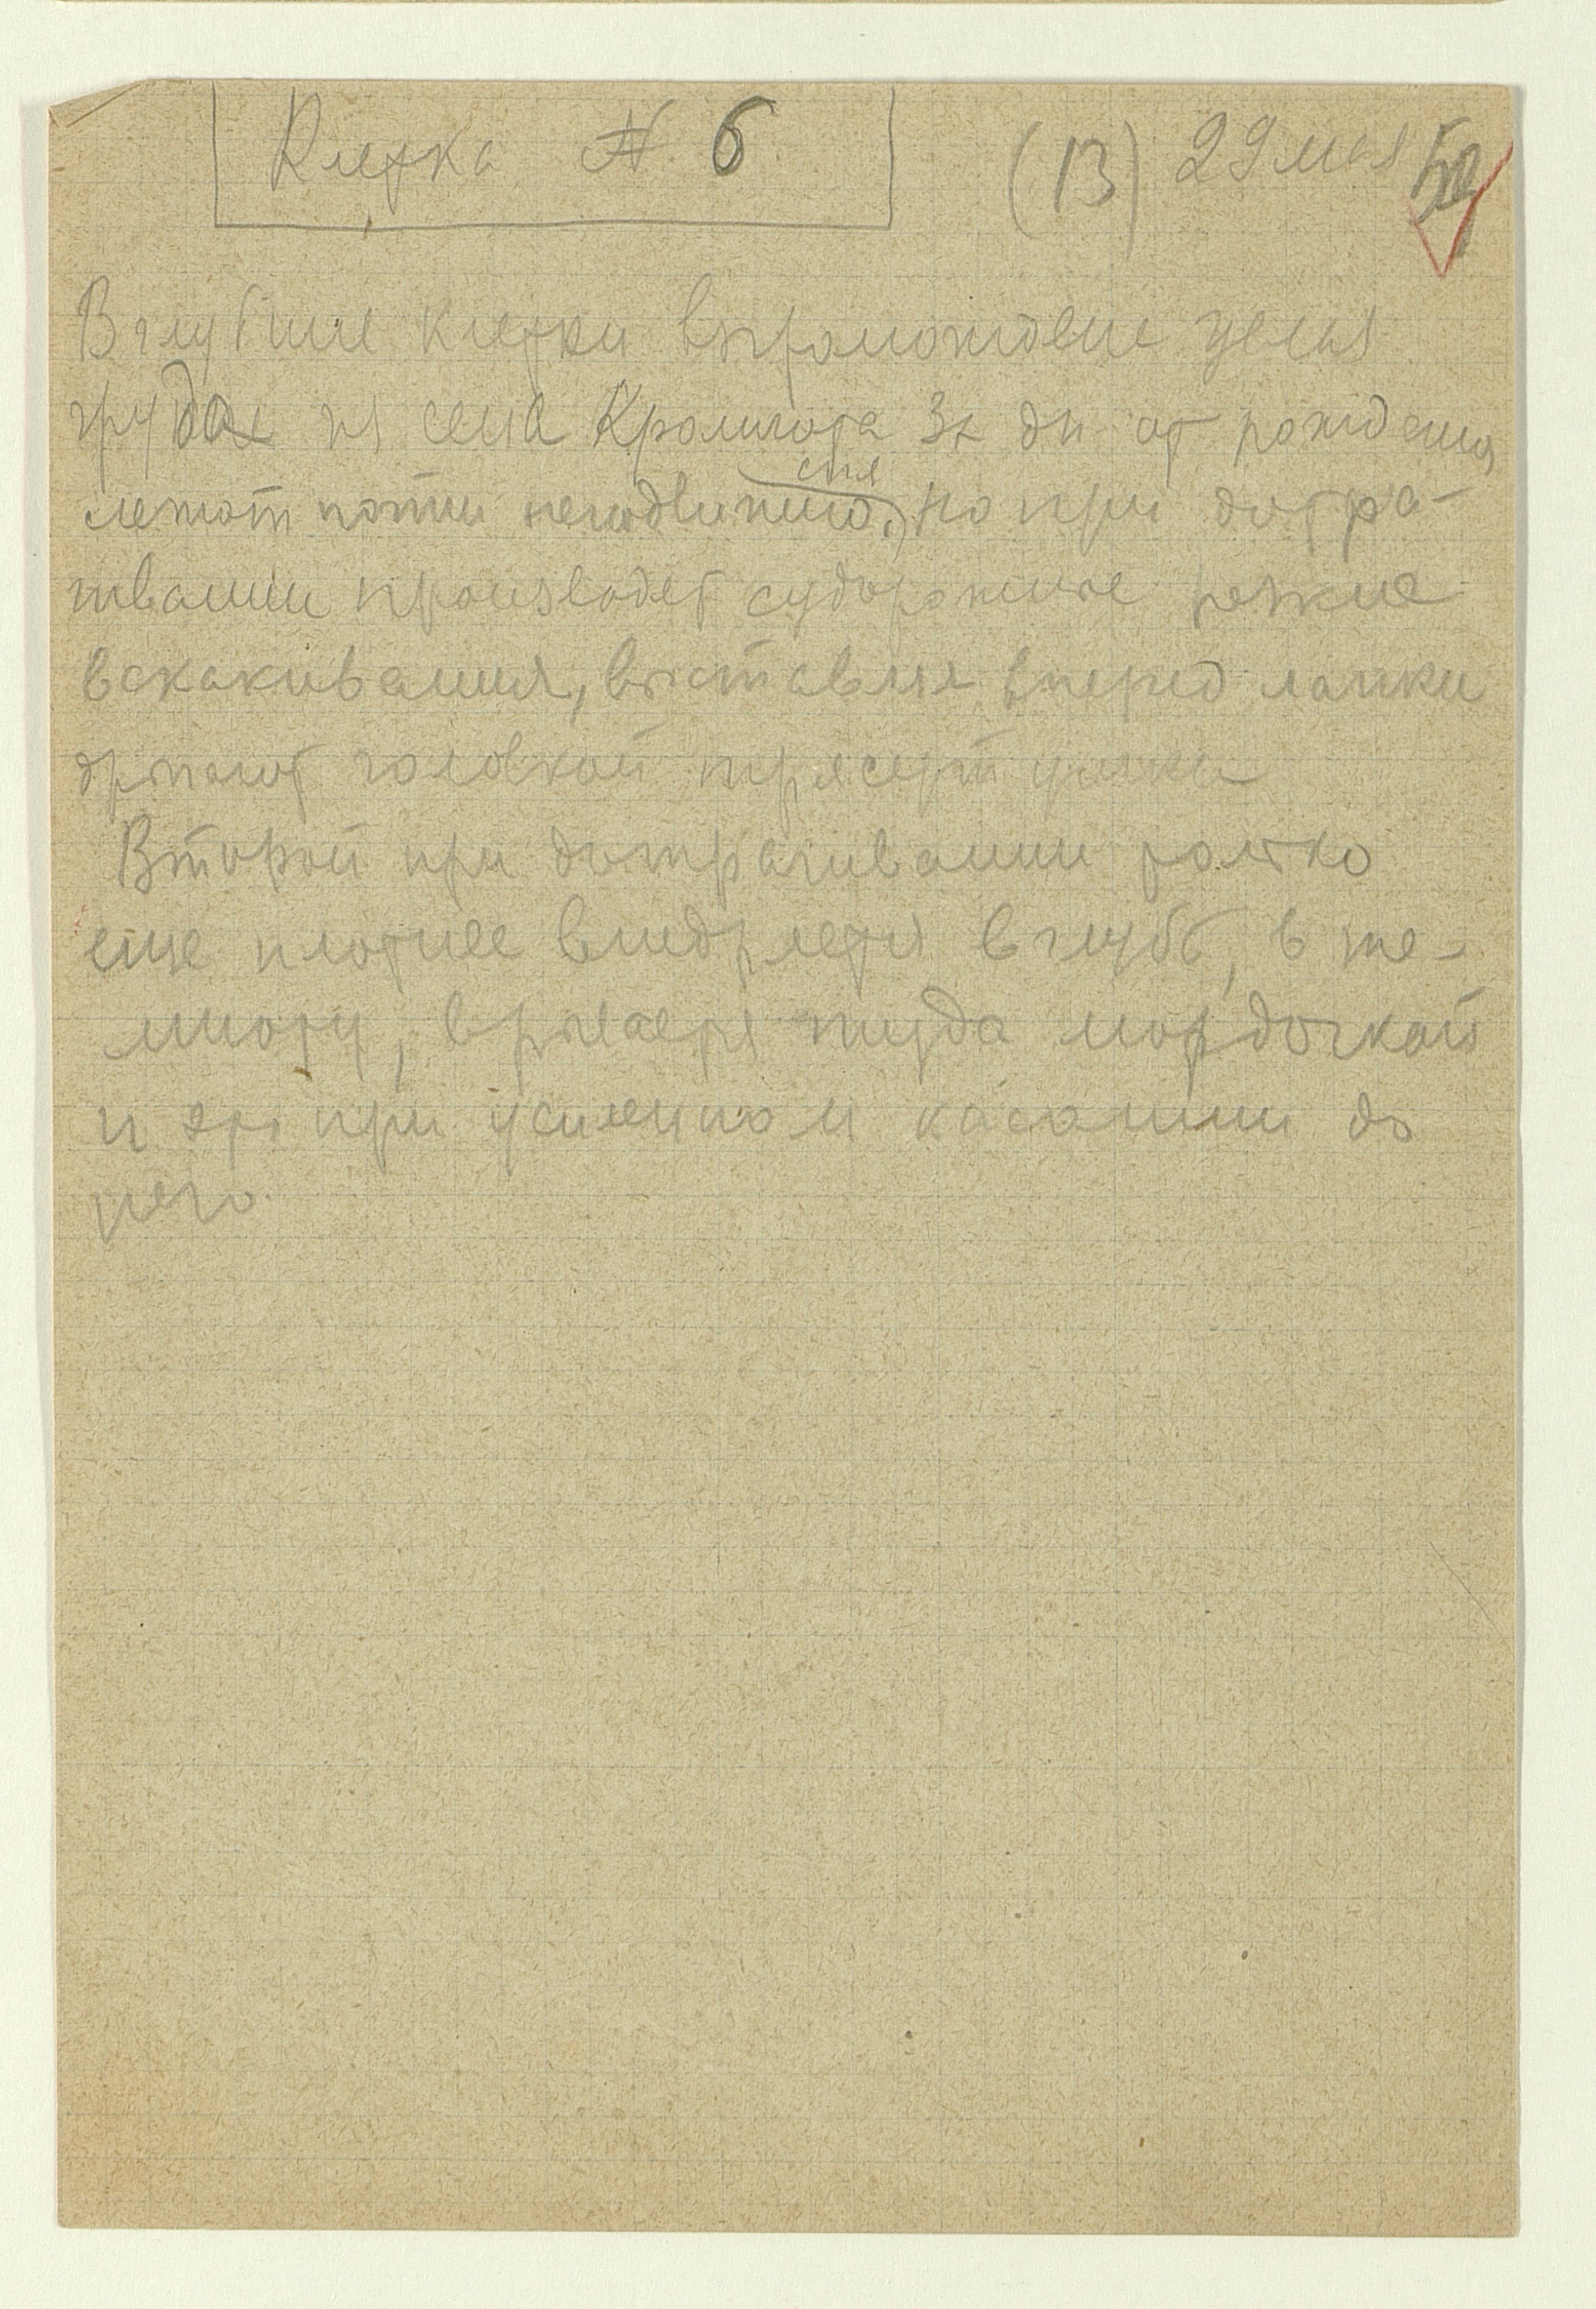 Клетка № 6 (13) 29 мая
В глубине клетки выгромождена целая
груда из сена Крольчата 3х дн от рождения
лежат почти неподвижно, спя но при дотра-
гивании производят судорожные резкие
вскакивания, выставляя вперед лапки
дрыгают головкой трясут ушки
Второй при дотрагивании только
еще плотнее внедряется в глубь, в те-
мноту, врывается туда мордочкой
и это при усиленном касании до
него.